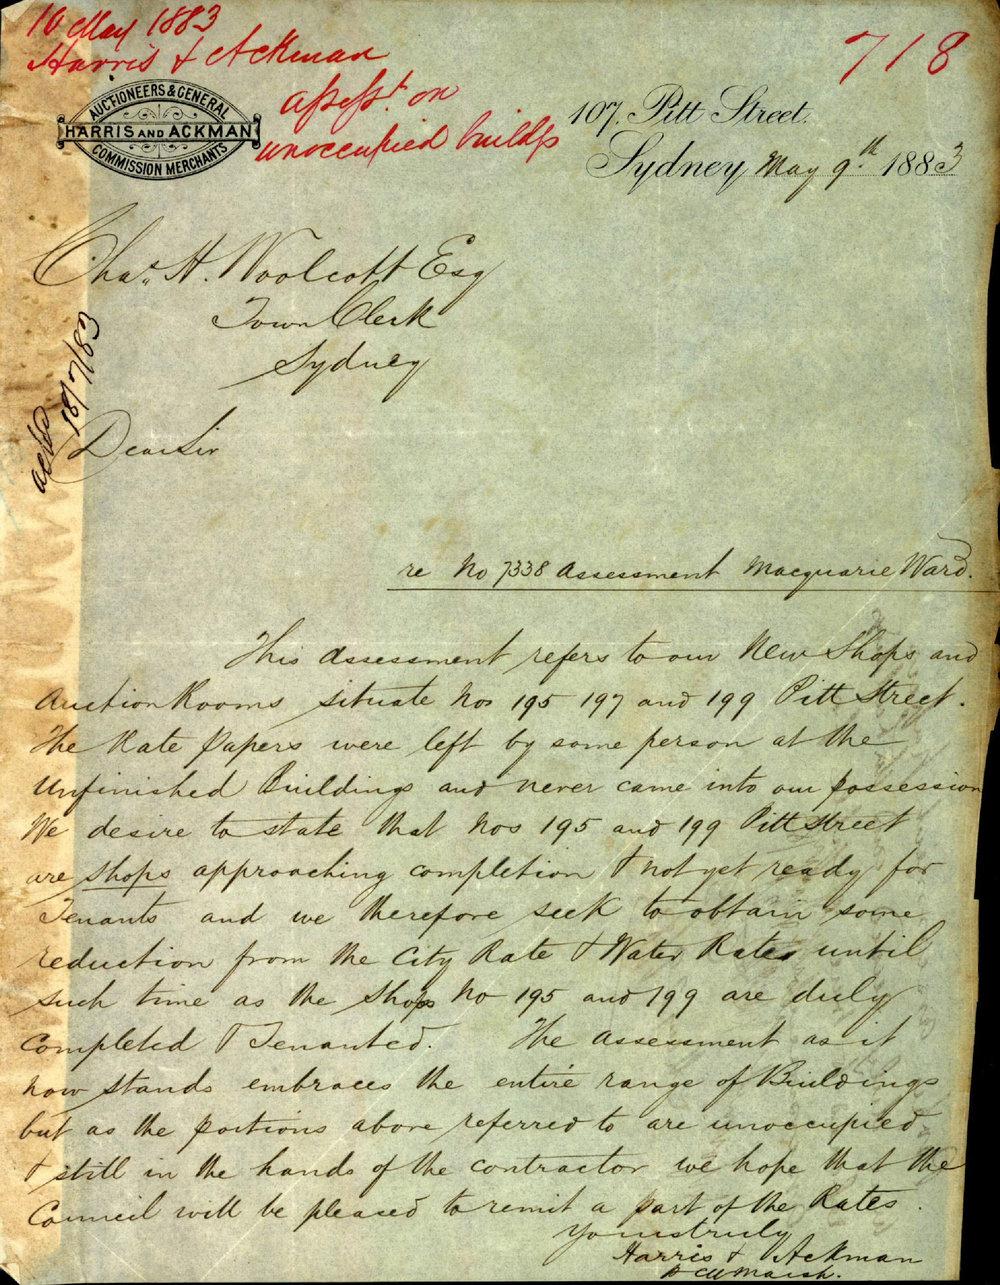 10 May 1883
Harris & Ackman
assesst. on
unoccupied buildgs
718
AUCTIONEERS & GENERAL
HARRIS AND ACKMAN
COMMISSION MERCHANTS
107, Pitt Street,
Sydney May 9th 1883
Chas. H. Woolcott Esq
Town Clerk
Sydney
18/7/83
Dear Sir
re No 7338 Assessment Macquarie Ward.
This assessment refers to our New Shops and
Auction Rooms situate Nos 195 197 and 199 Pitt Street.
The Rate Papers were left by some person at the
Unfinished Buildings and never came into our possession
We desire to state that Nos 195 and 199 Pitt Street
are shops approaching completion & not yet ready for
Tenants and we therefore seek to obtain some
reduction from the City Rate & Water Rates until
such time as the shops No 195 and 199 are duly
completed & Tenanted. The Assessment as it
now stands embraces the entire range of Buildings
but as the portions above referred to are unoccupied
& still in the hands of the contractor we hope that the
Council will be pleased to remit a part of the Rates.
Yours truly
Harris & Ackman